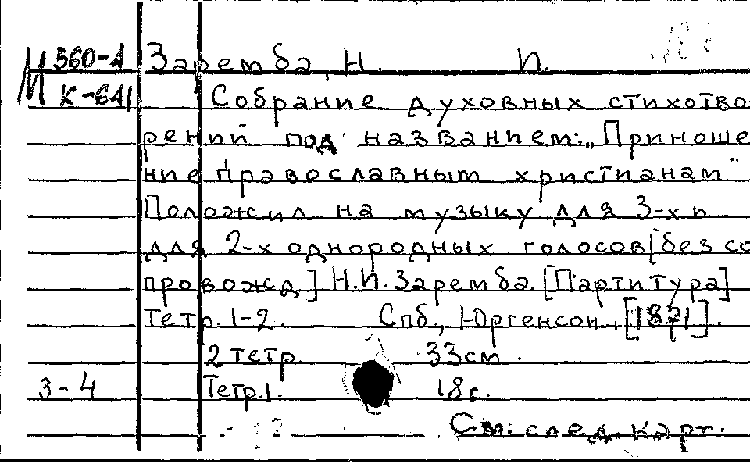 М 560-4 Заремба, Н. И.
К-641 Собрание духовных стихотво
рений под названием: „Приноше
ние православным христианам"
Положил на музыку для 3-х и
для 2-х однородных голосов [без со
провожд.] Н.И. Заремба. [Партитура]
Тетр. 1-2. Спб., Юргенсон, [1871].
2 тетр. 33см.
3-4 Тетр.1. 18с.
См. след. карт.